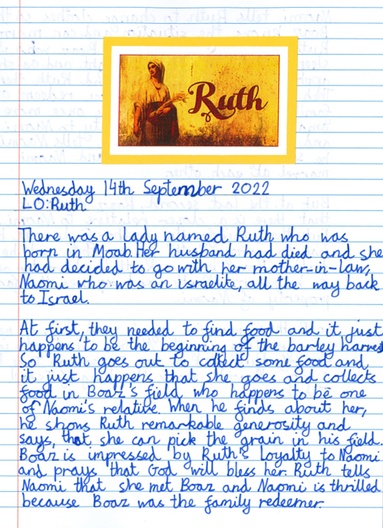 Ruth
Wednesday 14th September 2022
LO:Ruth
There was a lady named Ruth who was
born in Moab. Her husband had died and she
had decided to go with her mother-in-law,
Naomi who was an israelite, all the way back
to Israel.
At first, they needed to find food and it just
happens to be the beginning of the barley harves
So Ruth goes out to collect some food and
it just happens that she goes and collects
food in Boaz's field, who happens to be one
of Naomi's relative. When he finds about her,
he shows Ruth remarkable generosity and
says, that she can pick the grain in his field.
Boaz is impressed by Ruth's loyalty to Naomi
and prays that God will bless her. Ruth tells
Naomi that she met Boaz and Naomi is thrilled
because Boaz was the family redeemer.